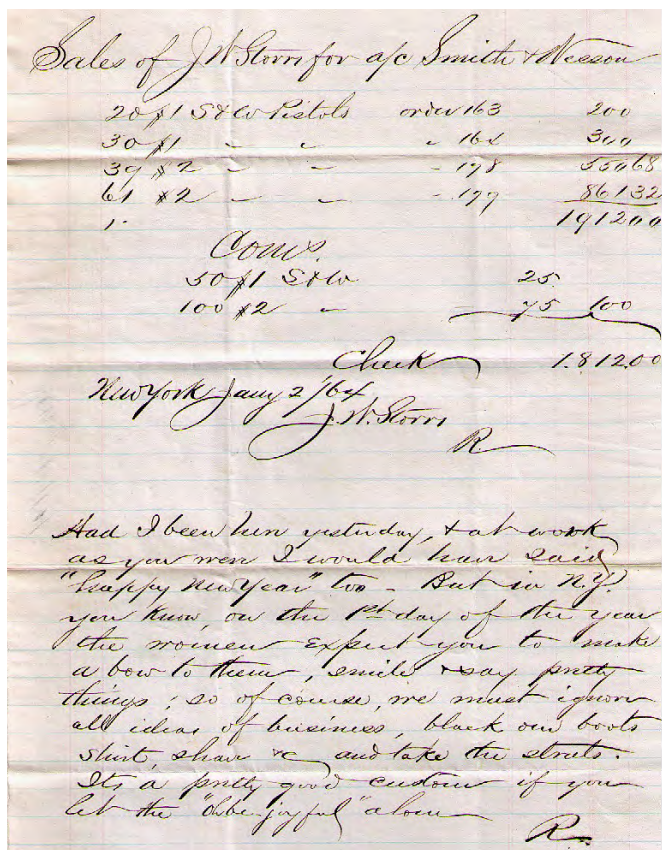 Sales of J W Storrs for a/c Smith & Wesson
20 #1 S&W Pistols order 163 200
30 #1 " " " 164 300
39 #2 " " " 178 55068
61 #2 " " " 179 86132
191200
Coms.
50 #1 S&W 25
100 #2 " 75 100
Check 1.812.00
New York Jany 2/64
J. W. Storrs
R
Had I been here yesterday, & at work
as you were I would have said
"happy New Year" too - But in N.Y.
you know, on the 1st day of the year
the women expect you to make
a bow to them, smile & say pretty
things; so of course, we must ignore
all ideas of business, black our boots
shirt, shave &c and take the streets.
Its a pretty good custom if you
let the "oh be joyful" alone
R.